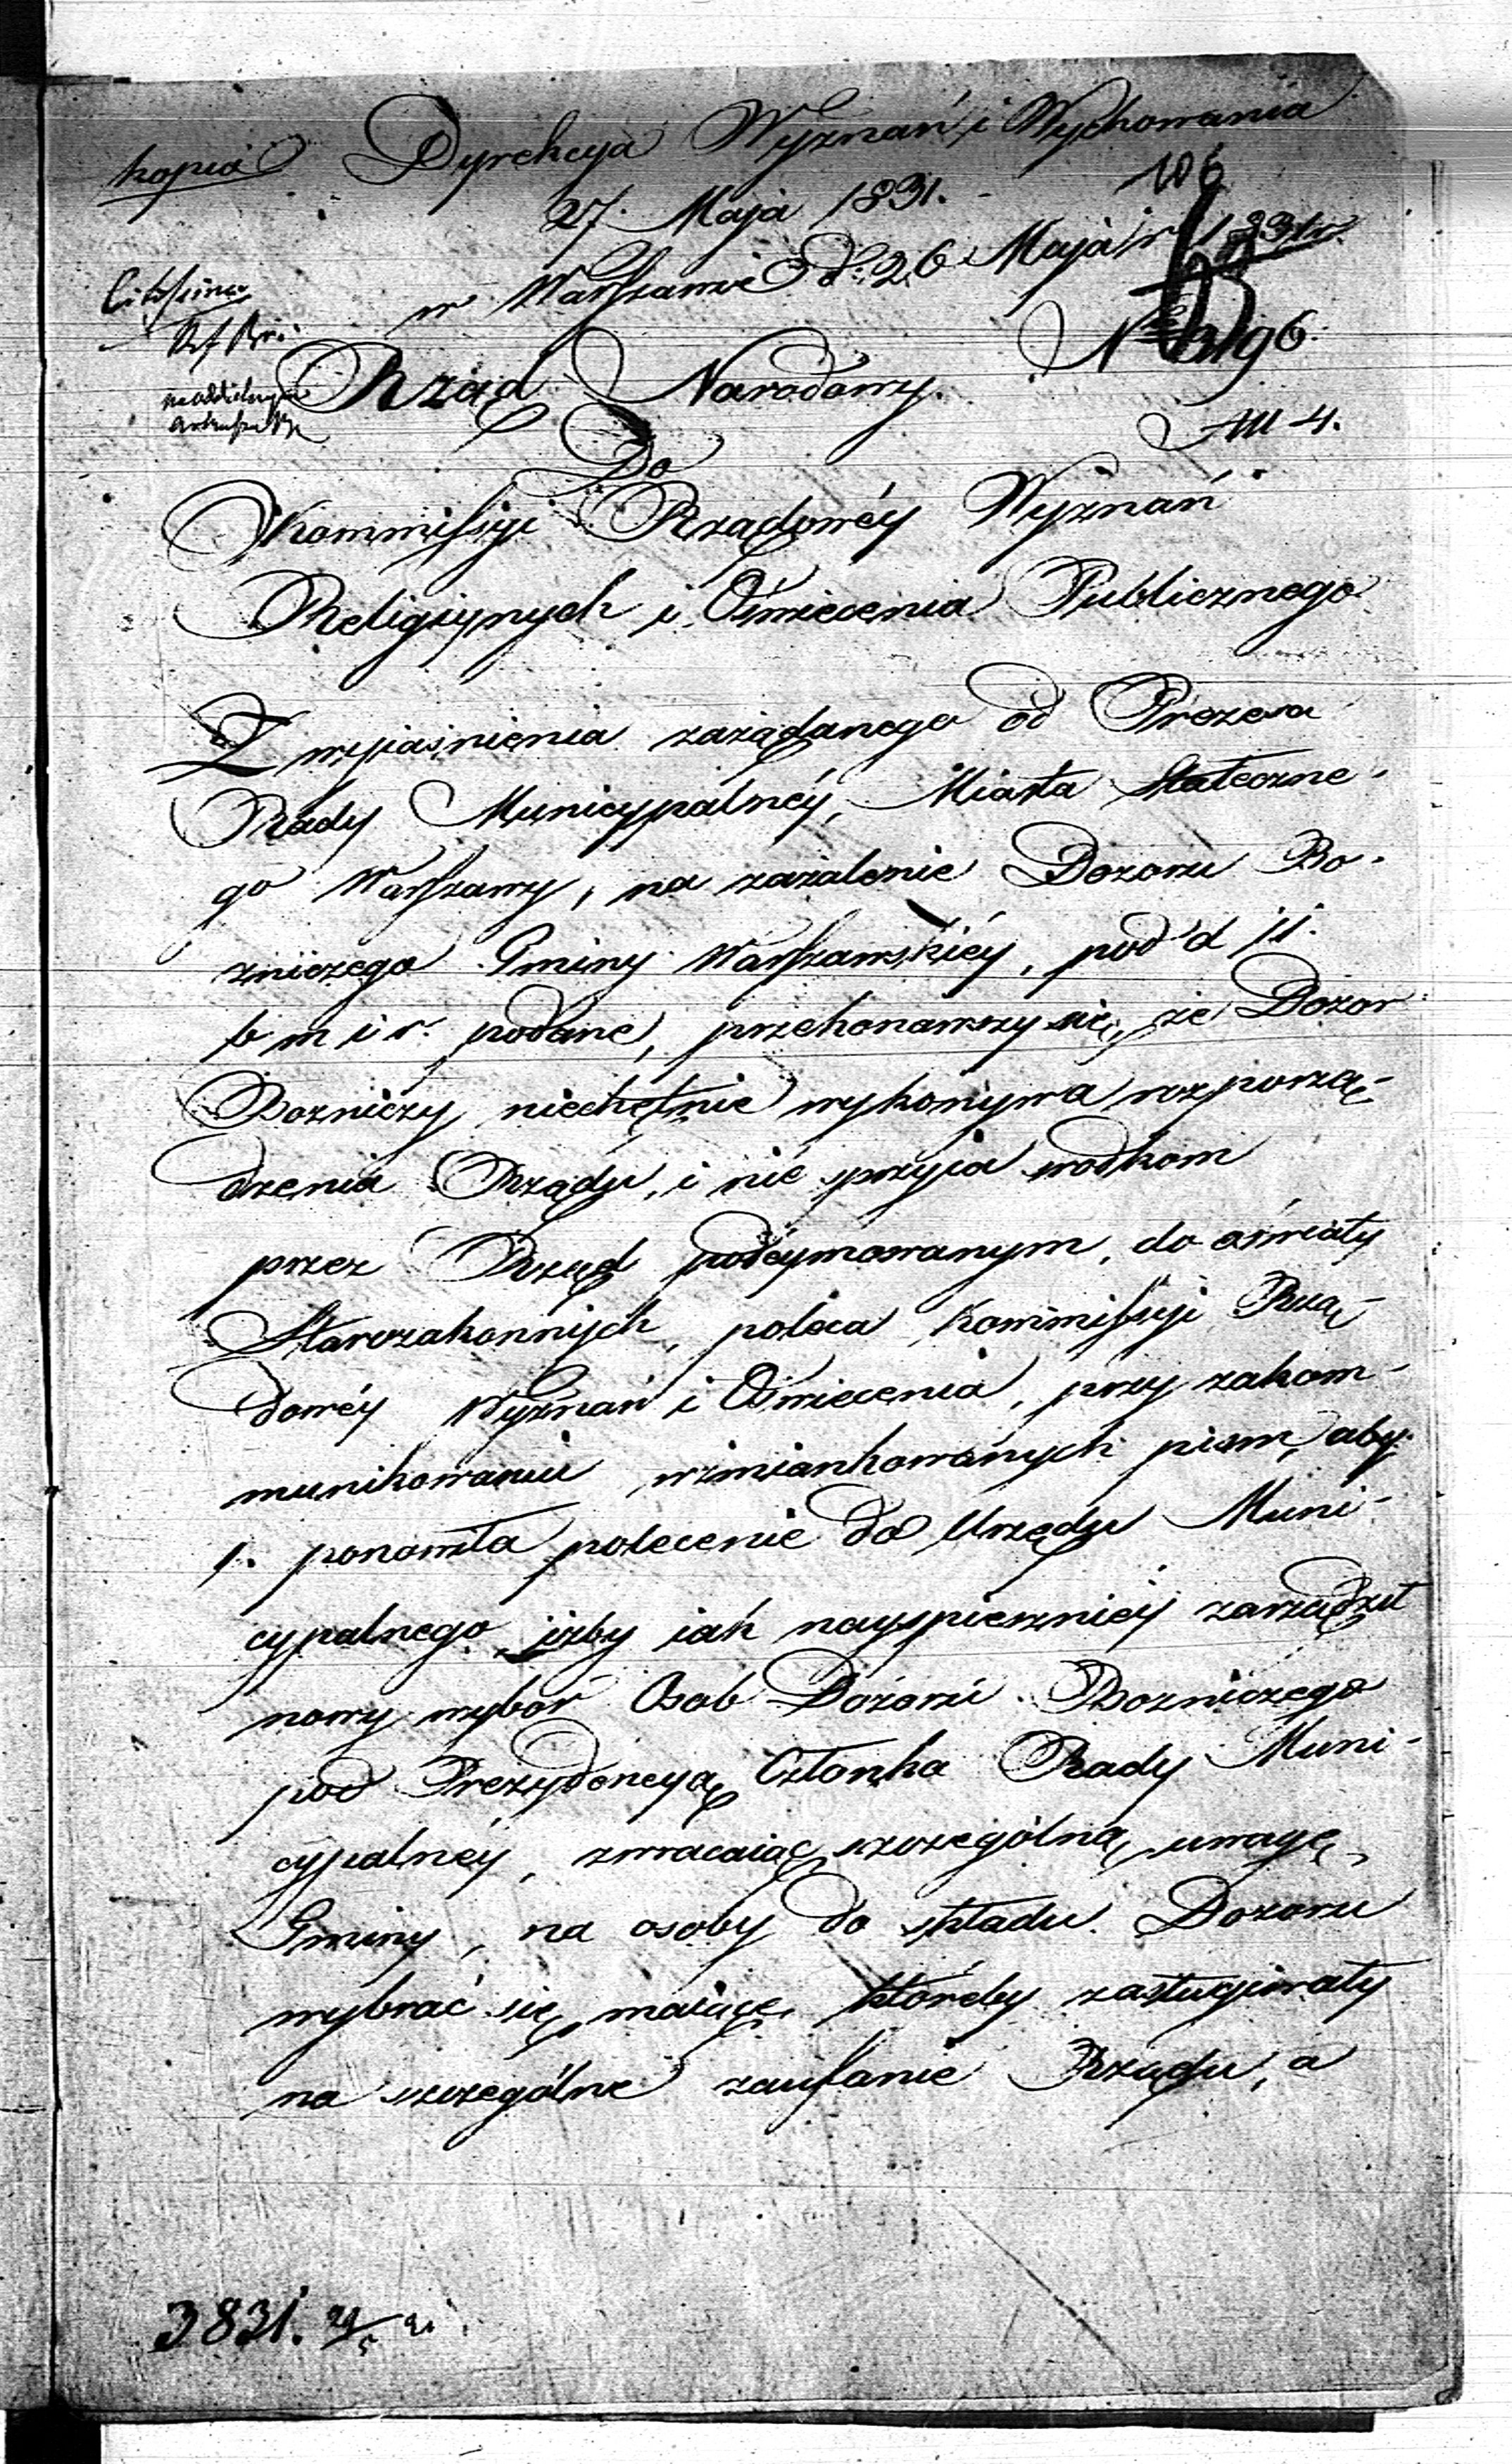 kopia Dyrekcya Wyznań i Wychowania
27. Maja 1831.
106
w Warszawie d: 26 Maja 1831 r.
Citissime
Rząd Narodowy.
Do
Kommissyi Rządowéy Wyznań
Religiynych i Oświecenia Publicznego
Z wyiasnienia zażądanego od Prezesa
Rady Municypalnéy, Miasta Stołeczne-
go Warszawy, na zażalenie Dozoru Bo-
zniczego Gminy Warszawskiéy, pod d 11.
b m i r. podane, przekonawszy się, że Dozor
Bozniczy niechętnie wykonywa rozporzą-
dzenia Rządu, i nie sprzyia srodkom
przez Rząd podeymowanym, do oświaty
Starozakonnych, poleca Kommissyi Rzą-
dowéy Wyznań i Oświecenia, przy zakom-
munikowaniu wzmiankowanych pism, aby
1. ponowiła polecenie do Urzędu Muni-
cypalnego, iżby iak nayspieszniéy zarządził
nowy wybór Osob Dozoru Bozniczego
pod Prezydencyą Członka Rady Muni-
cypalnéy, zwracaiąc szczególną uwagę
Gminy, na osoby do składu Dozoru
wybrać się maiące, któreby zasługiwały
na szczególne zaufanie Rządu, a
3831. 29/5